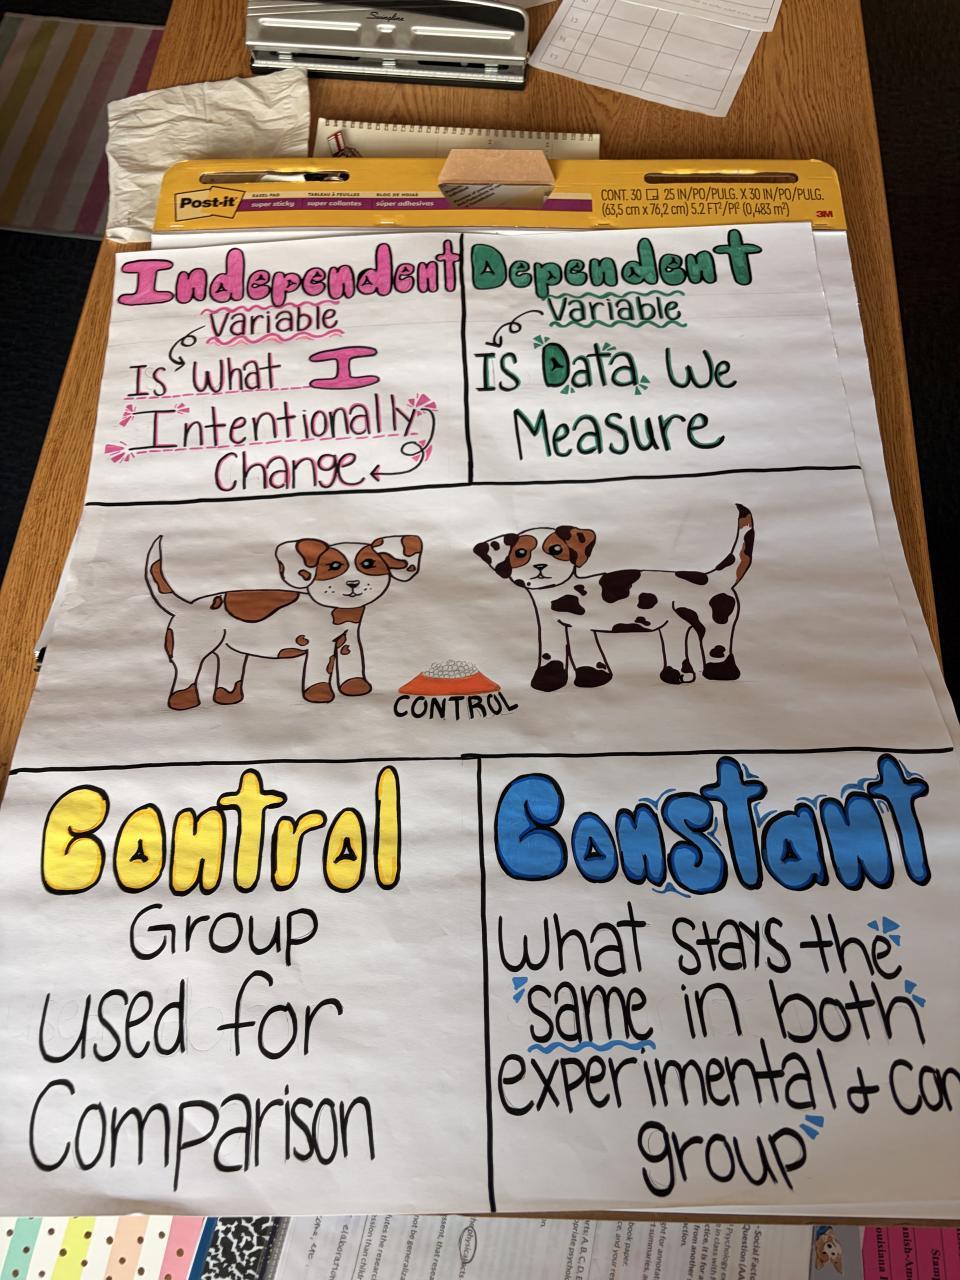 Swingline
Post-it
EASEL PAD
super sticky
TABLEAU À FEUILLES
super collantes
BLOC DE HOJAS
súper adhesivas
CONT. 30 25 IN/PO/PULG. X 30 IN/PO/PULG.
(63,5 cm x 76,2 cm) 5.2 FT²/PI² (0,483 m²)
3M
Independent
Variable
Is What I
Intentionally
Change
Dependent
Variable
Is Data We
Measure
CONTROL
Control
Group
used for
Comparison
Constant
What stays the
"same" in both
experimental & con
group